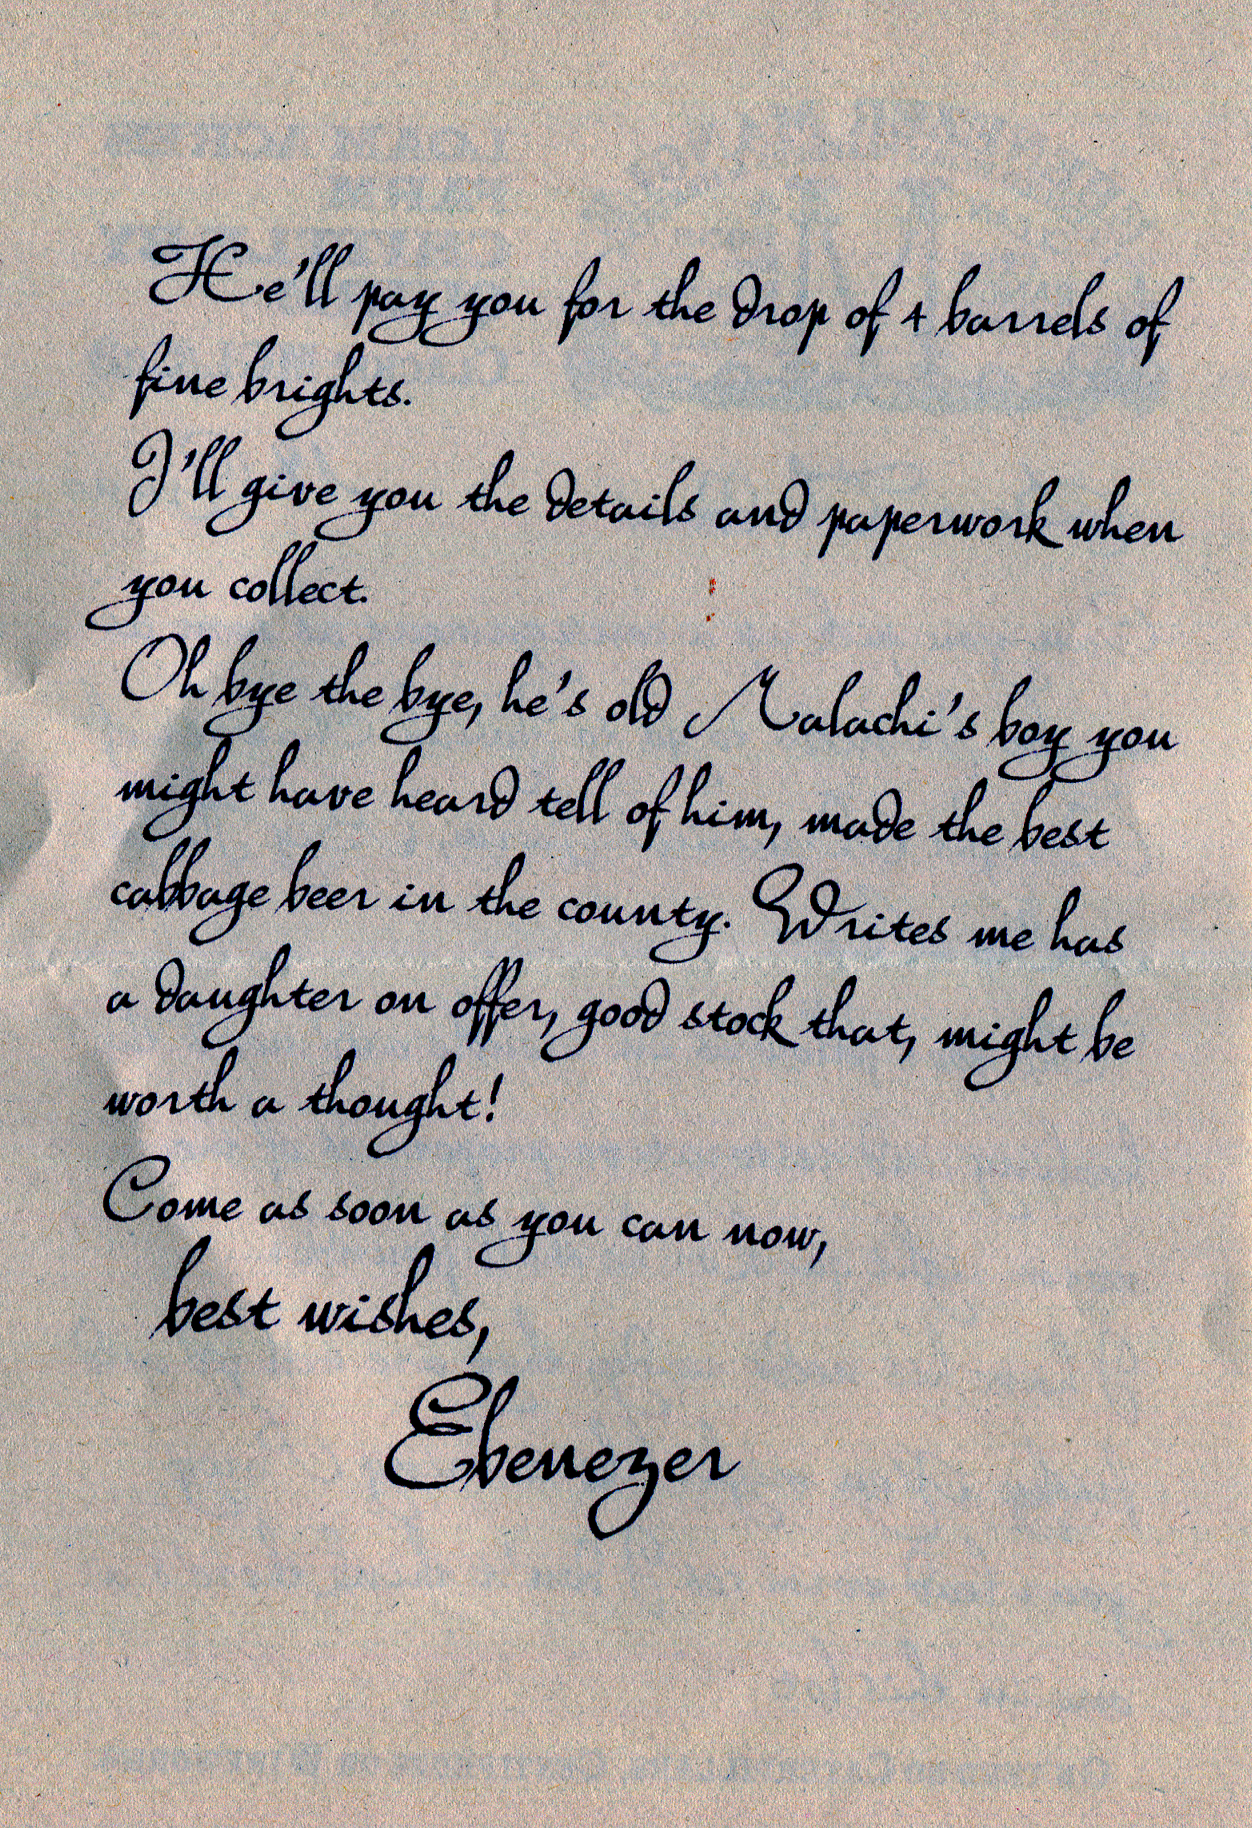 He'll pay you for the drop of 4 barrels of
fine brights.
I'll give you the details and paperwork when
you collect.
Oh bye the bye, he's old Malachi's boy you
might have heard tell of him, made the best
cabbage beer in the county. Writes me has
a daughter on offer, good stock that, might be
worth a thought!
Come as soon as you can now,
best wishes,
Ebenezer